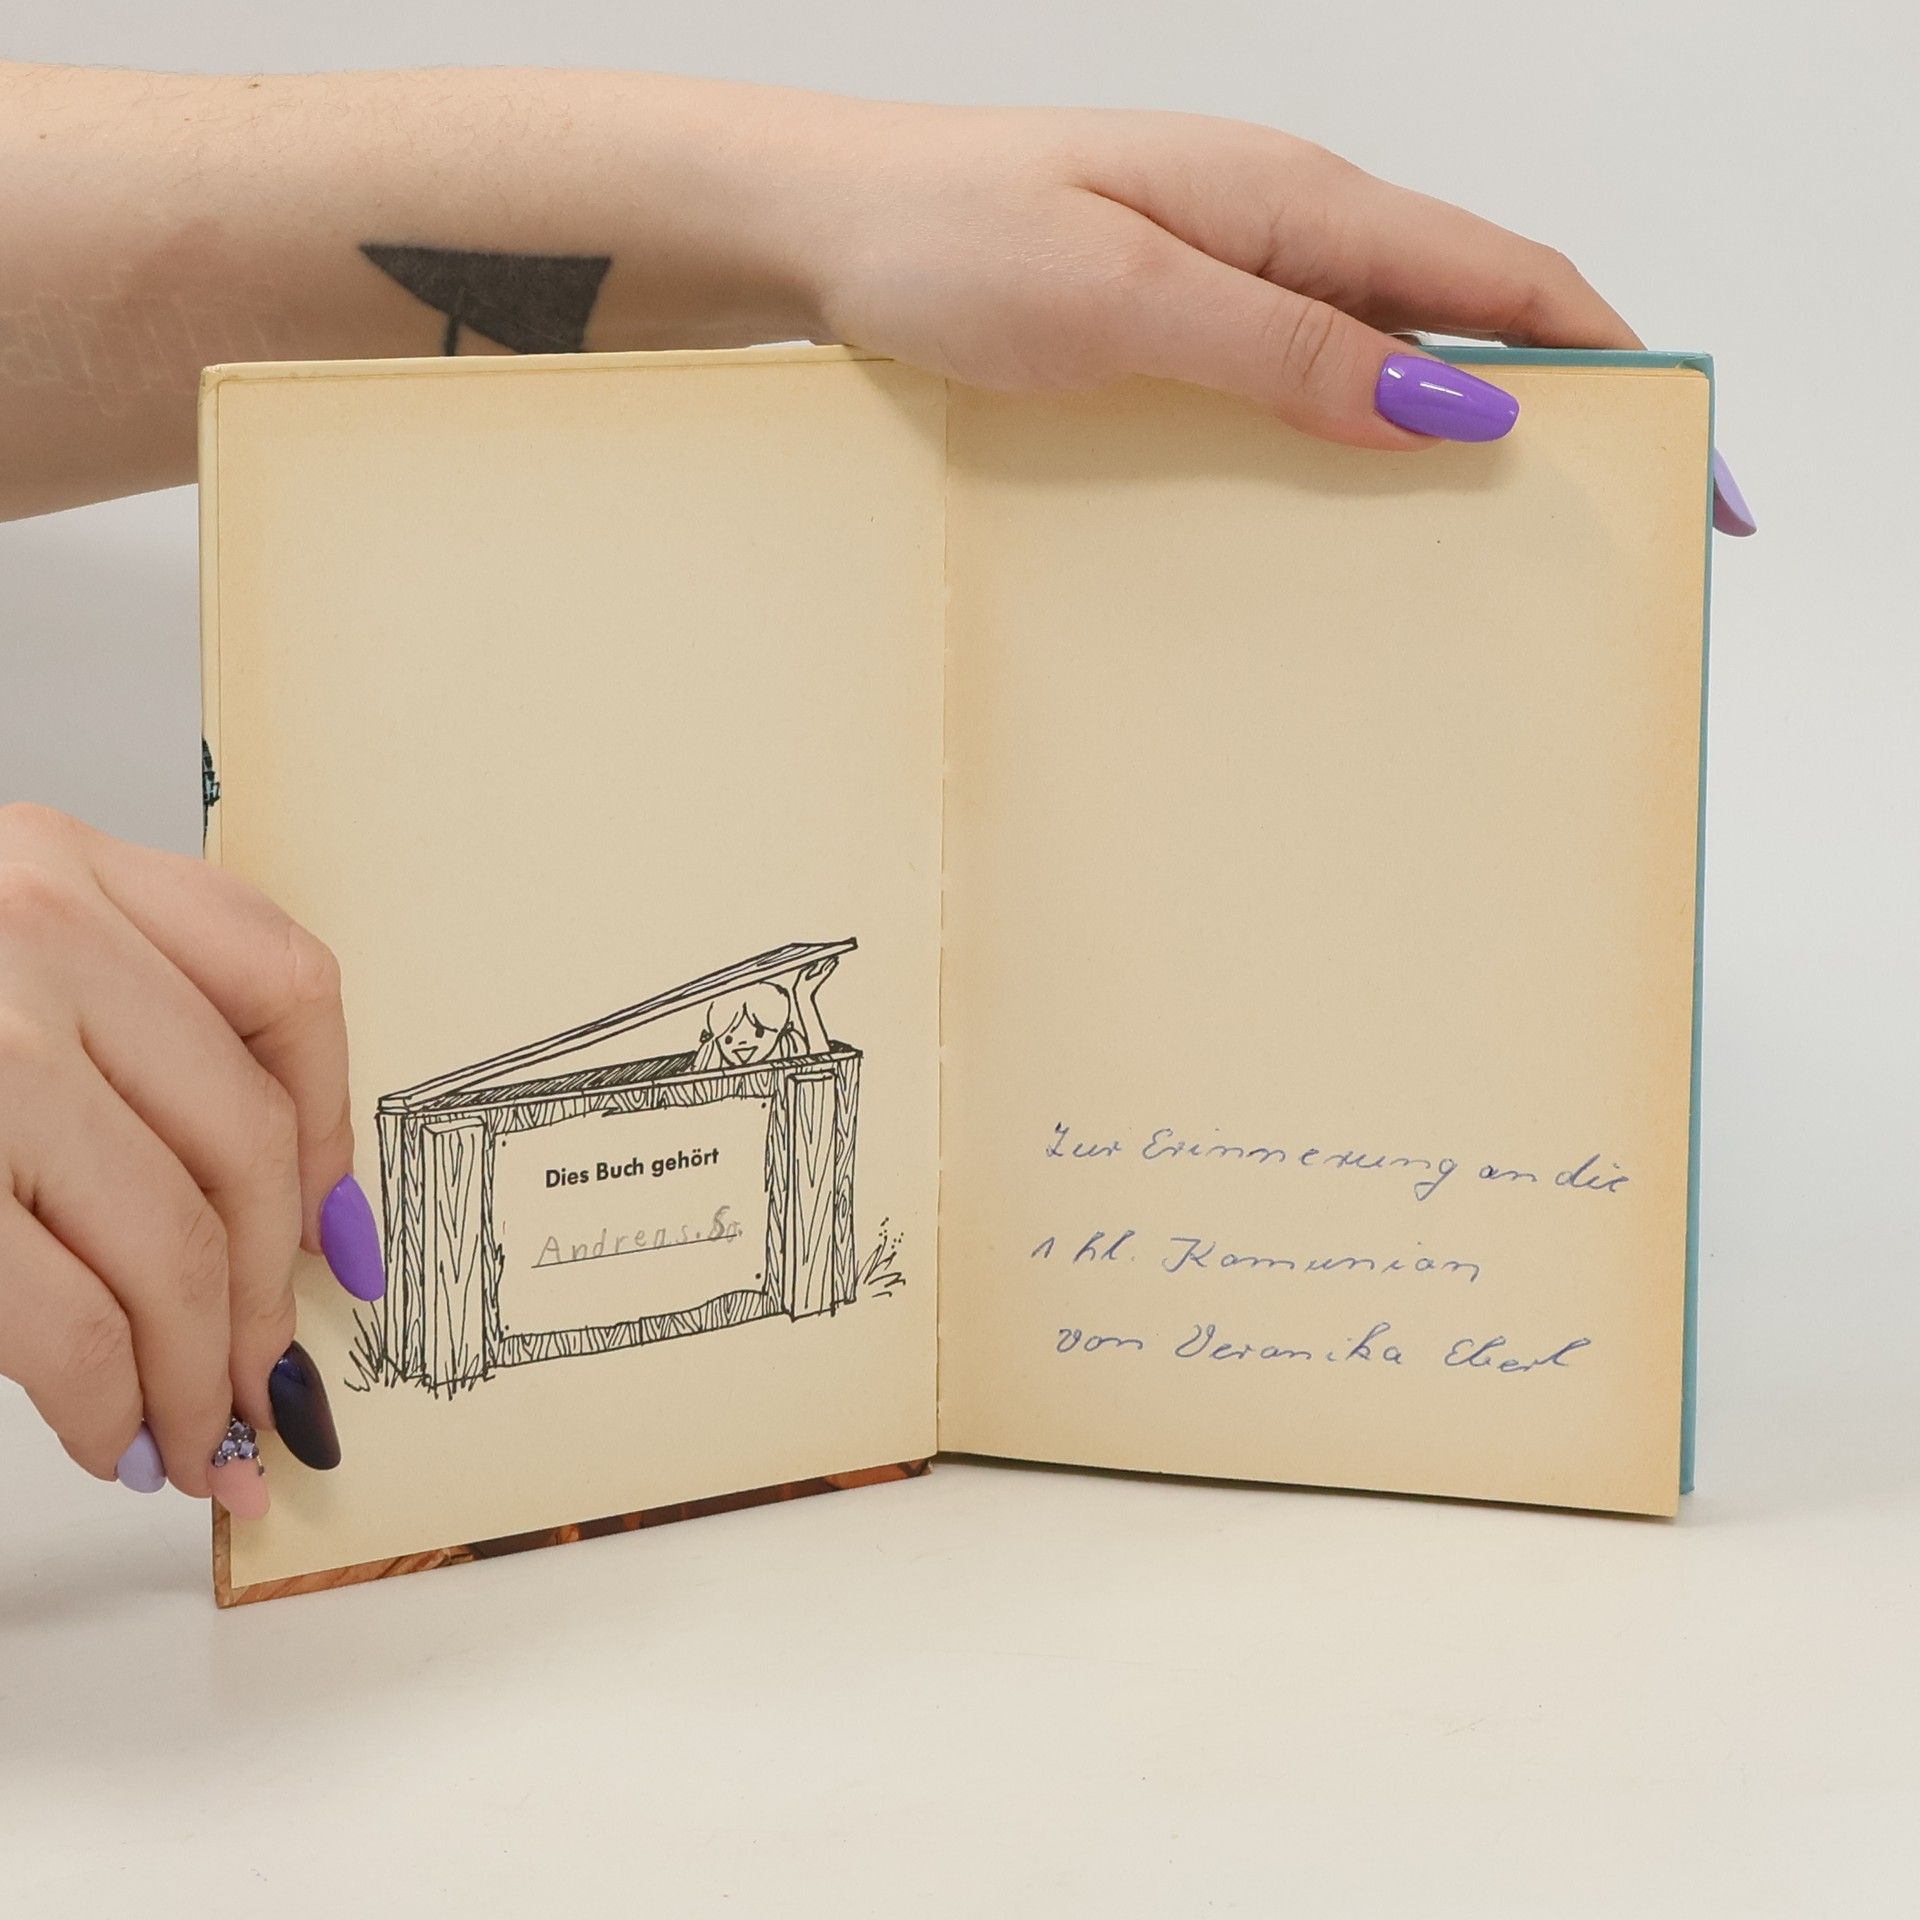 Dies Buch gehört
Andreas.
Zur Erinnerung an die
1 hl. Komunion
von Veronika Eberl